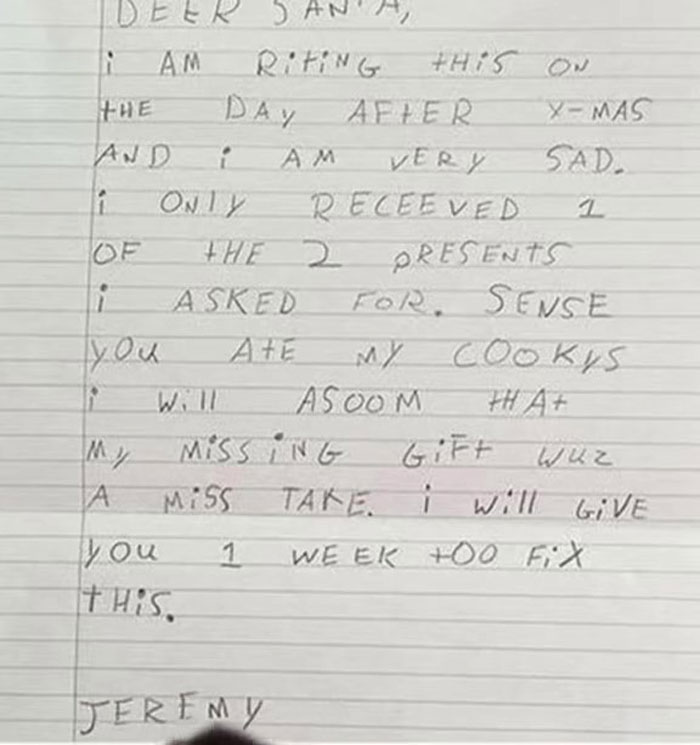 DEER SANTA,
i AM RiTiNG tHiS ON
tHE DAy AFtER X-MAS
AND i AM VERY SAD.
i ONlY RECEEVED 1
OF tHE 2 pRESENTS
i ASKED FOR. SENSE
yOu AtE MY COOKyS
i Will ASOOM tHAt
My MiSSiNG GiFt wuz
A MiSS TAKE. i will GiVE
yOU 1 WEEK tOO FiX
tHiS.
JEREMY